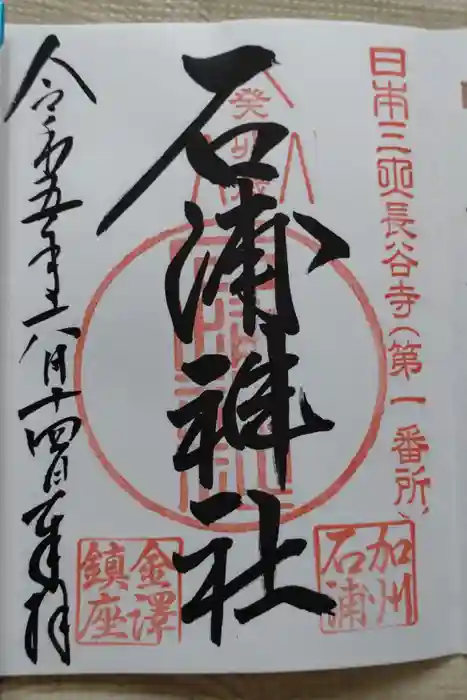 日本三長谷寺(第一番所)
加州
石浦
癸卯歳
石浦神社
金澤
鎮座
令和五年八月十四日奉拝